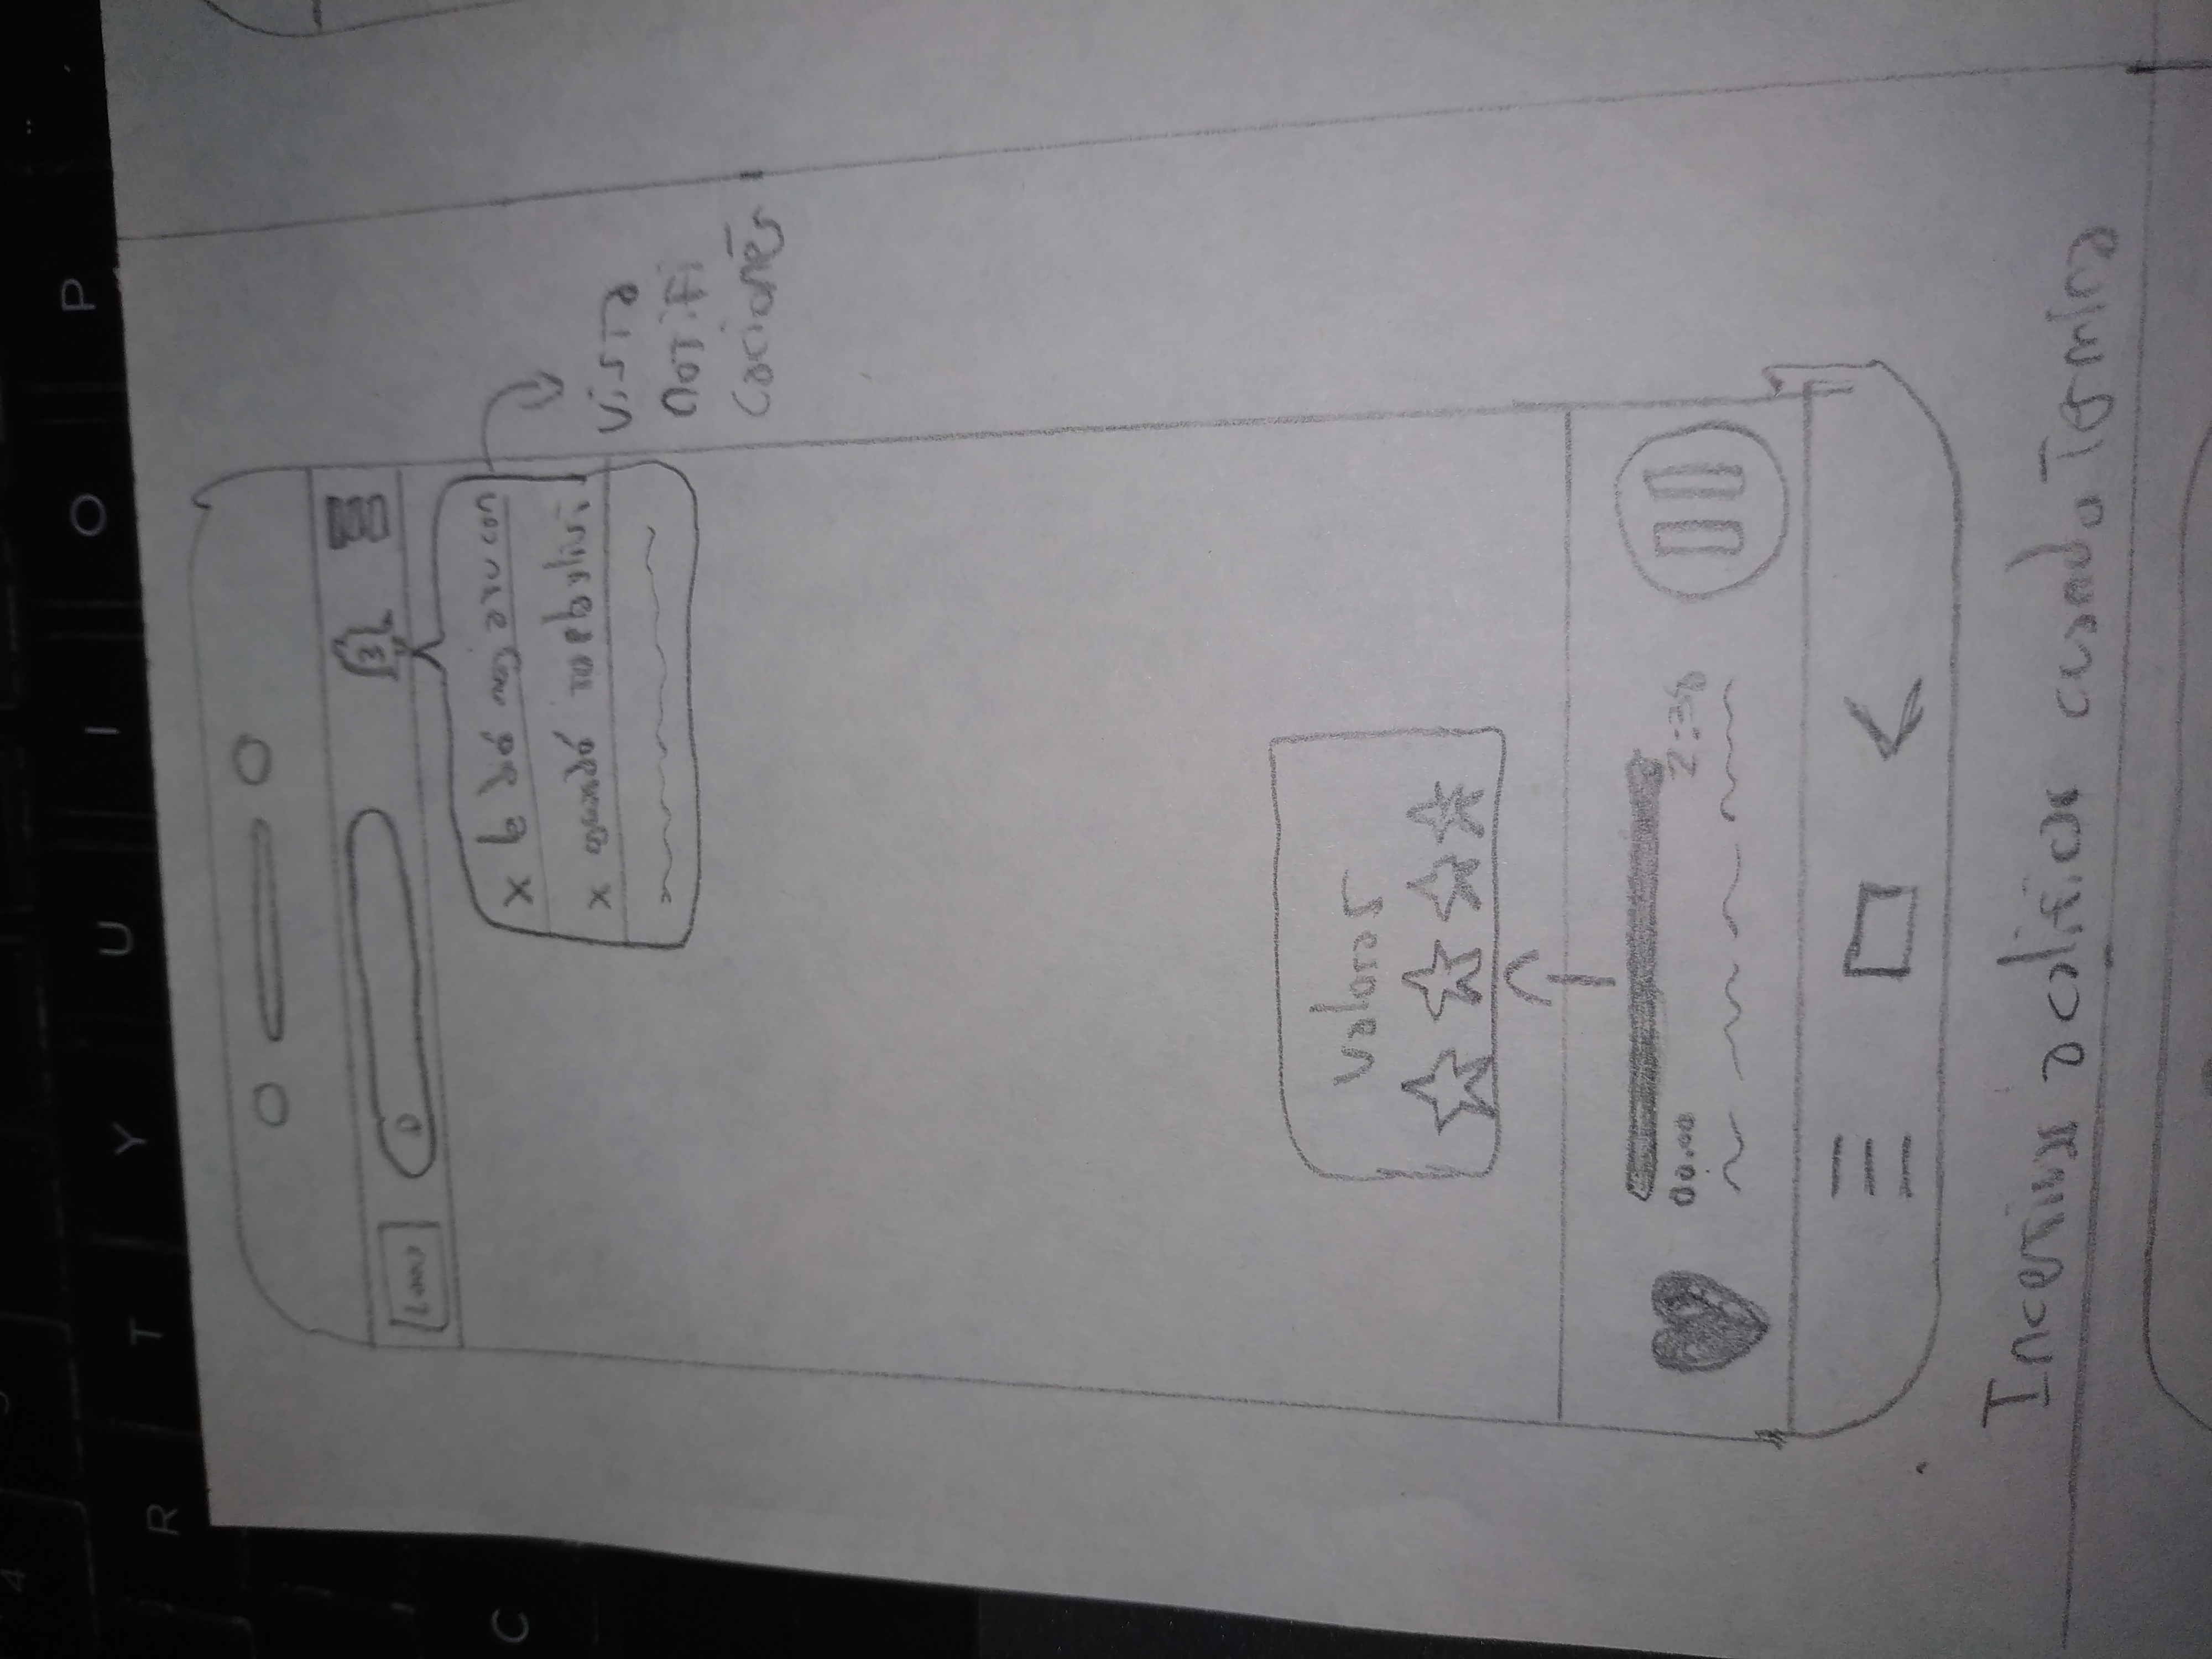 4
R T Y U I O P
C
Logo
3
x le dió
x guardó
vista
notifi
caciones
Valorar
00:00 2:38
Incentivar a calificar cuando Termina